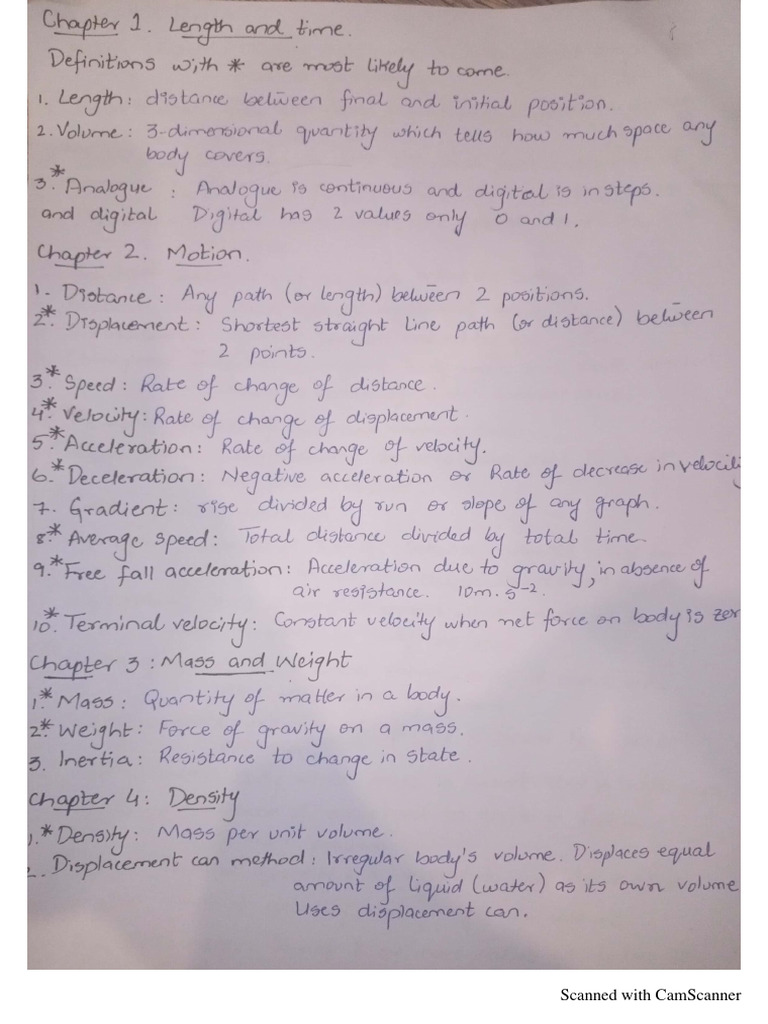 Chapter 1. Length and time.
Definitions with * are most likely to come.
1. Length: distance between final and initial position.
2. Volume: 3-dimensional quantity which tells how much space any
body covers.
3.* Analogue : Analogue is continuous and digital is in steps.
and digital Digital has 2 values only 0 and 1.
Chapter 2. Motion.
1. Distance: Any path (or length) between 2 positions.
2.* Displacement: Shortest straight line path (or distance) between
2 points.
3.* Speed: Rate of change of distance.
4.* Velocity: Rate of change of displacement.
5.* Acceleration: Rate of change of velocity.
6.* Deceleration: Negative acceleration or Rate of decrease in velocity
7. Gradient: rise divided by run or slope of any graph.
8.* Average speed: Total distance divided by total time.
9.* Free fall acceleration: Acceleration due to gravity, in absence of
air resistance. 10m.s⁻².
10.* Terminal velocity: Constant velocity when net force on body is zer
Chapter 3: Mass and Weight
1.* Mass: Quantity of matter in a body.
2.* Weight: Force of gravity on a mass.
3. Inertia: Resistance to change in state.
Chapter 4: Density
1.* Density: Mass per unit volume.
2. Displacement can method: Irregular body's volume. Displaces equal
amount of liquid (water) as its own volume
Uses displacement can.
Scanned with CamScanner